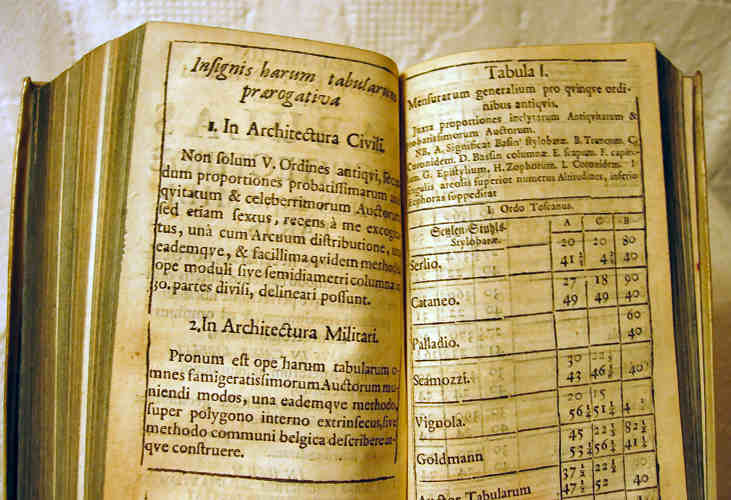 Insignis harum tabularum
prærogativa
1. In Architectura Civili.
Non solum V. Ordines antiqvi, secun
dum proportiones probatissimarum an
qvitatum & celeberrimorum Auctorum
sed etiam sextus, recens à me excogita
tus, unà cum Arcuum distributione, un
eademqve, & facillima qvidem methodo
ope moduli sive semidiametri columnæ in
30. partes divisi, delineari possunt.
2. In Architectura Militari.
Pronum est ope harum tabularum o-
mnes famigeratissimorum Auctorum mu-
niendi modos, una eademqve methodo,
super polygono interno extrinsecus, sive
methodo communi belgica describere at-
qve construere.
Tabula I.
Mensurarum generalium pro qvinqve ordi-
nibus antiqvis.
Juxta proportiones inclytarum Antiqvitatum &
probatissimorum Auctorum.
NB. A. Significat Basin stylobatæ. B. Truncum. C.
Coronidem. D. Bassin columnæ. E. scapum. F. capi
G. Epistylium. H. Zophorum. I. Coronidem. I
singulis areolis superior numerus Altitudines, inferio
Ecphoras suppeditat
I. Ordo Toscanus.
Seulen-Stuhls- A C B
Stylobatæ. 20 20 80
Serlio. 41 ½ 40
27 18 90
Cataneo. 49 49 40
60
Palladio. 40
30 22½
Scamozzi. 43 46½ 40
20 15
Vignola. 56½ 51½
45 22½ 82½
Goldmann 56¼ 41¼
37½ 22½ 90
Auctor Tabularum 47½ 52 40